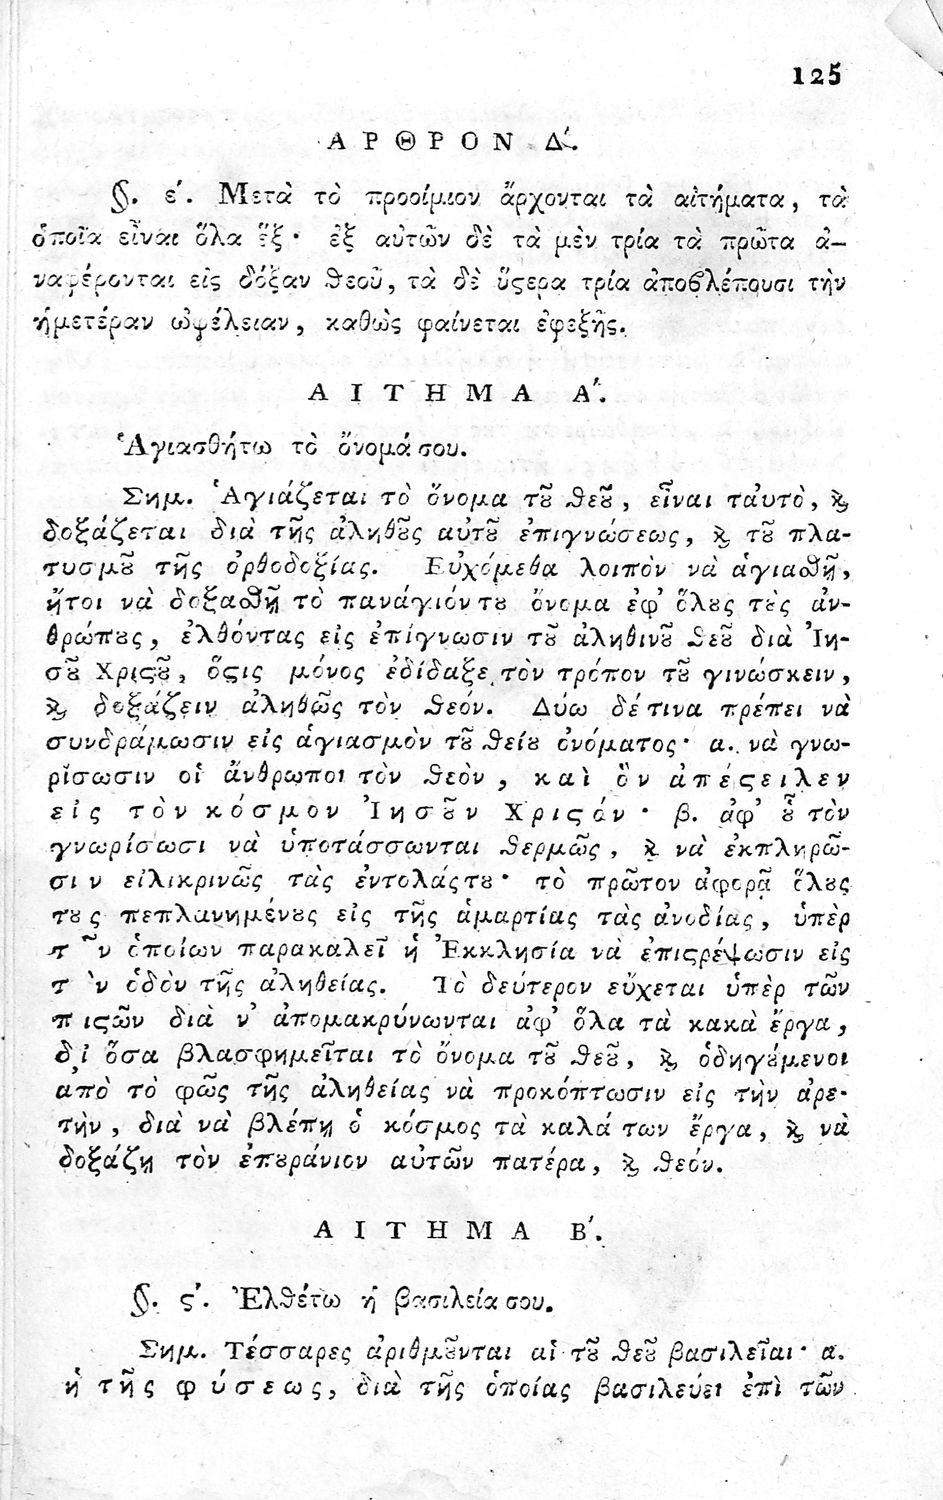 125
ΑΡΘΡΟΝ Δ´.
§. ε´. Μετὰ τὸ προοίμιον ἄρχονται τὰ αἰτήματα, τὰ
ὁποῖα εἶναι ὅλα ἕξ· ἐξ αὐτῶν δὲ τὰ μὲν τρία τὰ πρῶτα ἀ-
ναφέρονται εἰς δόξαν Θεοῦ, τὰ δὲ ὕϛερα τρία ἀποβλέπουσι τὴν
ἡμετέραν ὠφέλειαν, καθὼς φαίνεται ἐφεξῆς.
ΑΙΤΗΜΑ Α´.
Ἁγιασθήτω τὸ ὄνομά σου.
Σημ. Ἁγιάζεται τὸ ὄνομα τȣ͂ Θεȣ͂, εἶναι ταὐτὸ, ϗ
δοξάζεται διὰ τῆς ἀληθȣ͂ς αὐτȣ͂ ἐπιγνώσεως, ϗ τȣ͂ πλα-
τυσμȣ͂ τῆς ὀρθοδοξίας. Εὐχόμεθα λοιπὸν νὰ ἁγιασθῇ,
ἤτοι νὰ δοξασθῇ τὸ πανάγιόν τȣ ὄνομα ἐφ' ὅλȣς τȣ̀ς ἀν-
θρώπȣς, ἐλθόντας εἰς ἐπίγνωσιν τȣ͂ ἀληθινȣ͂ Θεȣ͂ διὰ Ἰη-
σȣ͂ Χριϛȣ͂, ὅϛις μόνος ἐδίδαξε τὸν τρόπον τȣ͂ γινώσκειν,
ϗ δοξάζειν ἀληθῶς τὸν Θεόν. Δύω δέ τινα πρέπει νὰ
συνδράμωσιν εἰς ἁγιασμὸν τȣ͂ Θείȣ ὀνόματος· α. νὰ γνω-
ρίσωσιν οἱ ἄνθρωποι τὸν Θεὸν, καὶ ὃν ἀπέϛειλεν
εἰς τὸν κόσμον Ἰησȣ͂ν Χριϛόν· β. ἀφ' ȣ͗͂ τὸν
γνωρίσωσι νὰ ὑποτάσσωνται Θερμῶς, ϗ νὰ ἐκπληρῶ-
σιν εἰλικρινῶς τὰς ἐντολάς τȣ· τὸ πρῶτον ἀφορᾷ ὅλȣς
τȣς πεπλανημένȣς εἰς τῆς ἁμαρτίας τὰς ἀνοδίας, ὑπὲρ
τῶν ὁποίων παρακαλεῖ ἡ Ἐκκλησία νὰ ἐπιϛρέψωσιν εἰς
τὴν ὁδὸν τῆς ἀληθείας. Τὸ δεύτερον εὔχεται ὑπὲρ τῶν
πιϛῶν διὰ ν' ἀπομακρύνωνται ἀφ' ὅλα τὰ κακὰ ἔργα,
δι' ὅσα βλασφημεῖται τὸ ὄνομα τȣ͂ Θεȣ͂, ϗ ὁδηγȣ́μενοι
ἀπὸ τὸ φῶς τῆς ἀληθείας νὰ προκόπτωσιν εἰς τὴν ἀρε-
τὴν, διὰ νὰ βλέπῃ ὁ κόσμος τὰ καλά των ἔργα, ϗ νὰ
δοξάζῃ τὸν ἐπȣράνιον αὐτῶν πατέρα, ϗ Θεόν.
ΑΙΤΗΜΑ Β´.
§. ϛ´. Ἐλθέτω ἡ βασιλεία σου.
Σημ. Τέσσαρες ἀριθμȣ͂νται αἱ τȣ͂ Θεȣ͂ βασιλεῖαι· α.
ἡ τῆς φύσεως, διὰ τῆς ὁποίας βασιλεύει ἐπὶ τῶν